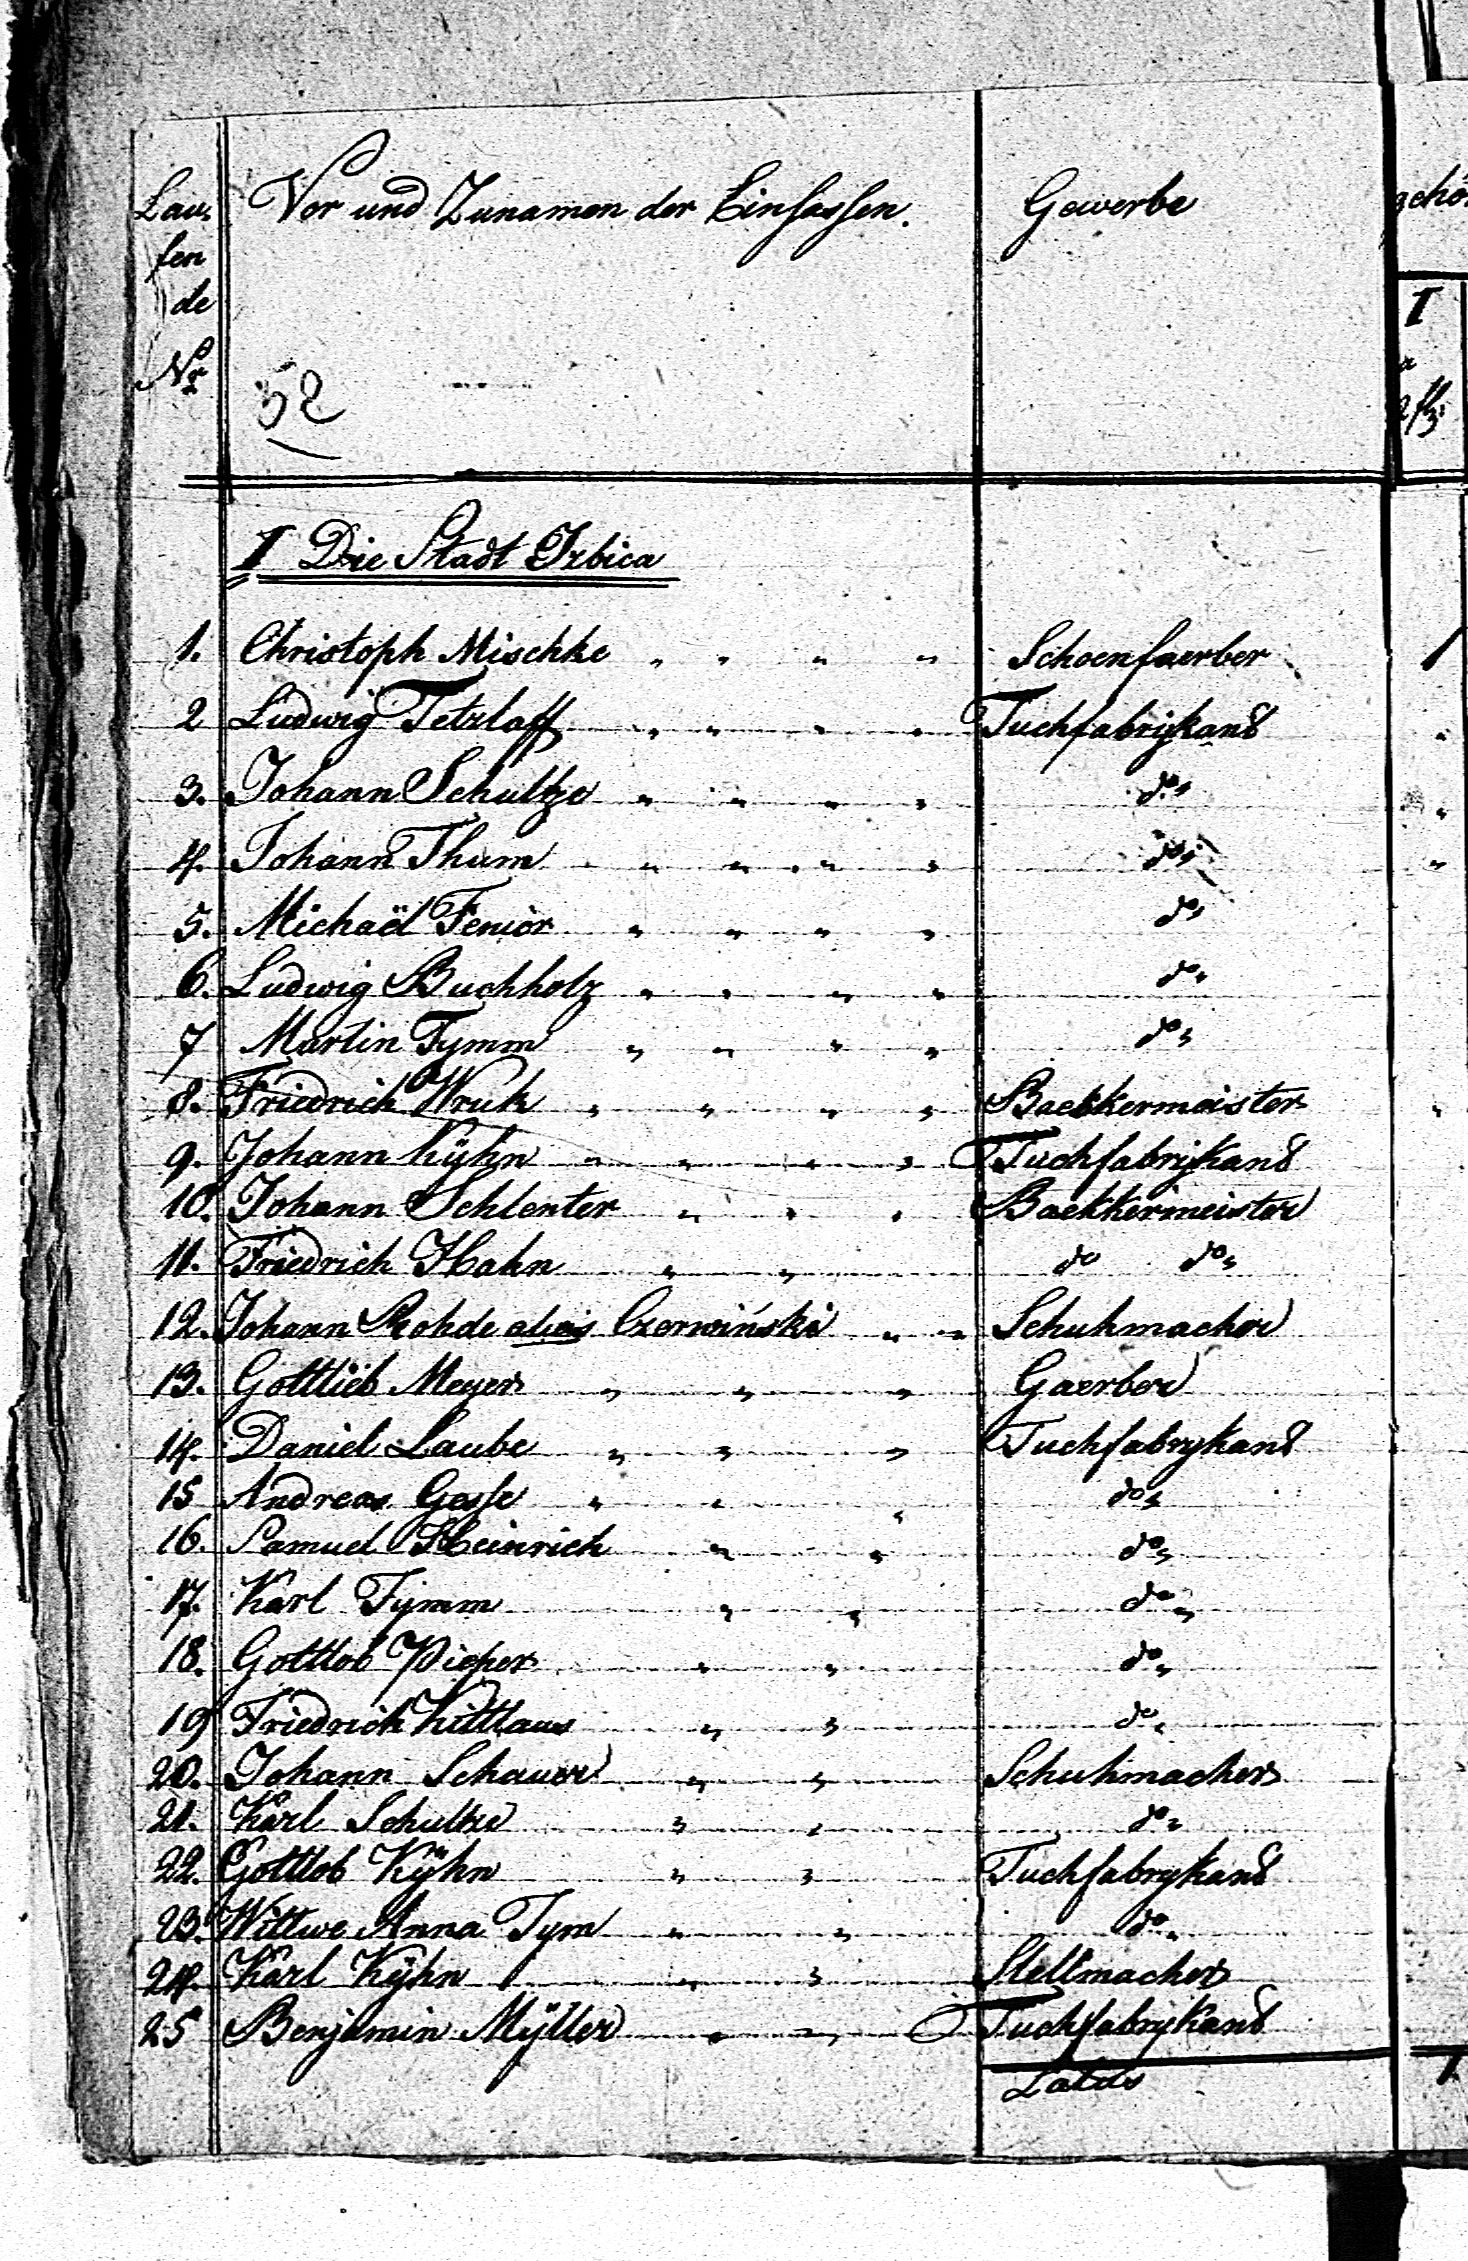 Lau- Vor und Zunamen der Einsassen. Gewerbe gehö
fen
de I
No
52
I Die Stadt Izbica
1. Christoph Mischke " " " " Schoenfaerber 1
2 Ludwig Tetzlaff " " " " Tuchfabrykand "
3. Johann Schultze " " " " do "
4. Johann Thum " " " " do "
5. Michaël Fenior " " " " do
6. Ludwig Buchholz " " " " do
7 Martin Tymm " " " " do
8. Friedrich Wruk " " " " Baekkermeister "
9. Johann Kÿhn " " " " Tuchfabrykand
10. Johann Schlenter " " " Baekkermeister
11. Friedrich Hahn " " do do
12. Johann Rohde alias Czerwiński " " Schuhmacher
13. Gottlieb Meyer " " " Gaerber
14. Daniel Laube " " " Tuchfabrykand
15 Andreas Gesse " " " do
16. Samuel Heinrich " " do
17. Karl Tymm " " do
18. Gottlob Pieper " " do
19 Friedrich Kittlaus " " do
20. Johann Schauer " " Schuhmacher
21. Karl Schultze " " do
22. Gottlob Kÿhn " " Tuchfabrykand
23. Wittwe Anna Tym " " do
24. Karl Kÿhn " " Stellmacher
25 Benjamin Mÿller " " Tuchfabrykand
Latus 1